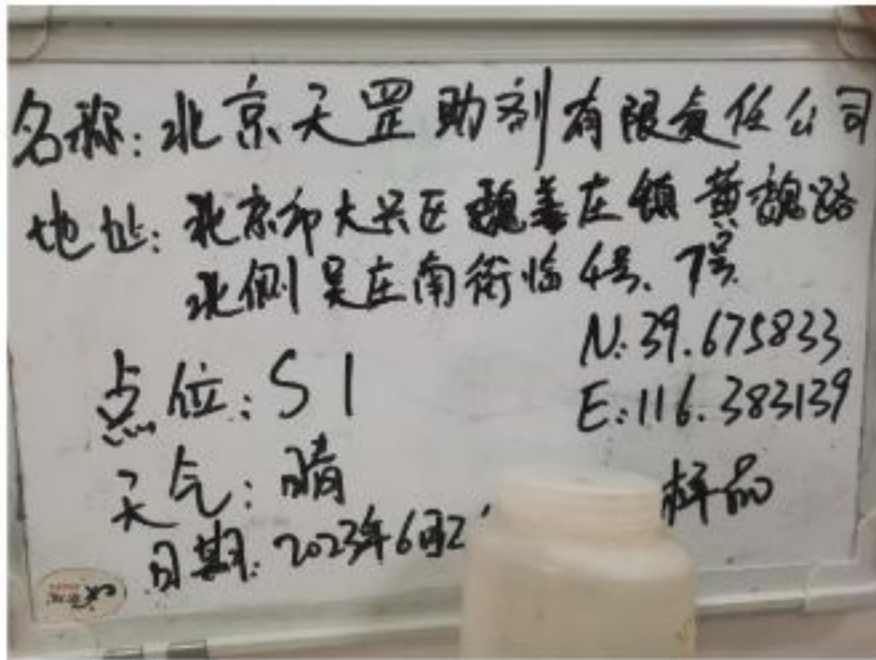 名称:北京天罡助剂有限责任公司
地址:北京市大兴区魏善庄镇黄魏路
北侧吴庄南街临4号、7号
N:39.675833
E:116.383139
点位:S1
天气:晴
样品
日期:2023年6月2